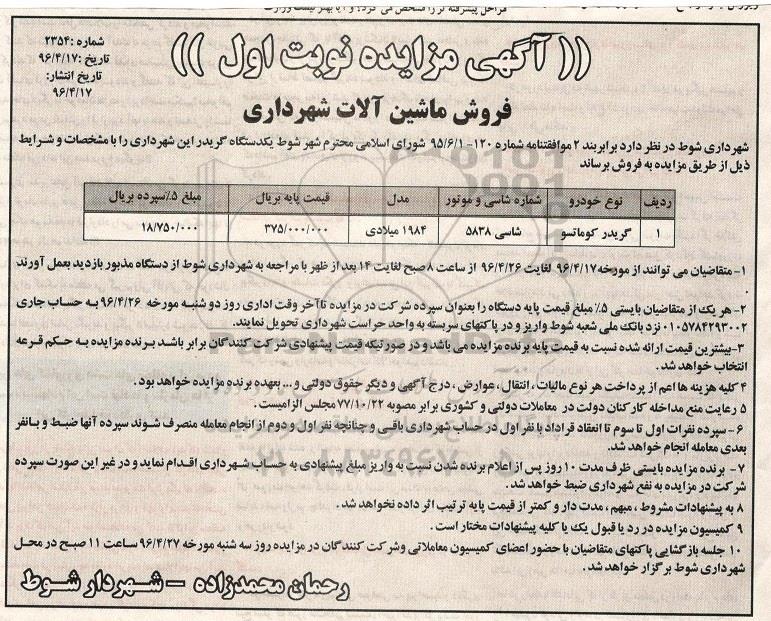 (( آگهی مزایده نوبت اول ))
شماره :۲۳۵۴
تاریخ :۹۶/۴/۱۷
تاریخ انتشار:
۹۶/۴/۱۷
فروش ماشین آلات شهرداری
شهرداری شوط در نظر دارد برابربند ۲ موافقتنامه شماره ۱۲۰- ۹۵/۶/۱ شورای اسلامی محترم شهر شوط یکدستگاه گریدر این شهرداری را با مشخصات و شرایط
ذیل از طریق مزایده به فروش برساند
ردیف نوع خودرو شماره شاسی و موتور مدل قیمت پایه بریال مبلغ ۵٪سپرده بریال
۱ گریدر کوماتسو شاسی ۵۸۳۸ ۱۹۸۴ میلادی ۳۷۵/۰۰۰/۰۰۰ ۱۸/۷۵۰/۰۰۰
۱-متقاضیان می توانند از مورخه ۹۶/۴/۱۷ لغایت ۹۶/۴/۲۶ از ساعت ۸صبح لغایت ۱۴ بعد از ظهر با مراجعه به شهرداری شوط از دستگاه مذبور بازدید بعمل آورند
.
۲- هر یک از متقاضیان بایستی ۵٪ مبلغ قیمت پایه دستگاه را بعنوان سپرده شرکت در مزایده تاآخر وقت اداری روز دو شنبه مورخه ۹۶/۴/۲۶ به حساب جاری
۰۱۰۵۷۸۴۲۹۳۰۰۲ نزد بانک ملی شعبه شوط واریز و در پاکتهای سربسته به واحد حراست شهرداری تحویل نمایند.
۳-بیشترین قیمت ارائه شده نسبت به قیمت پایه برنده مزایده می باشدو در صورتیکه قیمت پیشنهادی شرکت کنندگان برابر باشد برنده مزایده به حکم قرعه
انتخاب خواهد شد.
۴ کلیه هزینه ها اعم از پرداخت هر نوع مالیات ، انتقال ، عوارض ، درج آگهی و دیگر حقوق دولتی و ... بعهده برنده مزایده خواهد بود .
۵ رعایت منع مداخله کارکنان دولت در معاملات دولتی و کشوری برابر مصوبه ۷۷/۱۰/۲۲مجلس الزامیست .
۶- سپرده نفرات اول تا سوم تا انعقاد قراداد با نفر اول در حساب شهرداری باقی و چنانچه نفر اول و دوم از انجام معامله منصرف شوند سپرده آنها ضبط و بانفر
بعدی معامله انجام خواهد شد.
۷- برنده مزایده بایستی ظرف مدت ۱۰ روز پس از اعلام برنده شدن نسبت به واریز مبلغ پیشنهادی به حساب شهرداری اقدام نماید و در غیر این صورت سپرده
شرکت در مزایده به نفع شهرداری ضبط خواهد شد .
۸ به پیشنهادات مشروط ، مبهم ، مدت دار و کمتر از قیمت پایه ترتیب اثر داده نخواهد شد .
۹ کمیسیون مزایده در رد یا قبول یک یا کلیه پیشنهادات مختار است .
۱۰ جلسه بازگشایی پاکتهای متقاضیان با حضور اعضای کمیسیون معاملاتی وشرکت کنندگان در مزایده روز سه شنبه مورخه ۹۶/۴/۲۷ساعت ۱۱ صبح در محل
شهرداری شوط برگزار خواهد شد .
رحمان محمدزاده – شهردار شوط